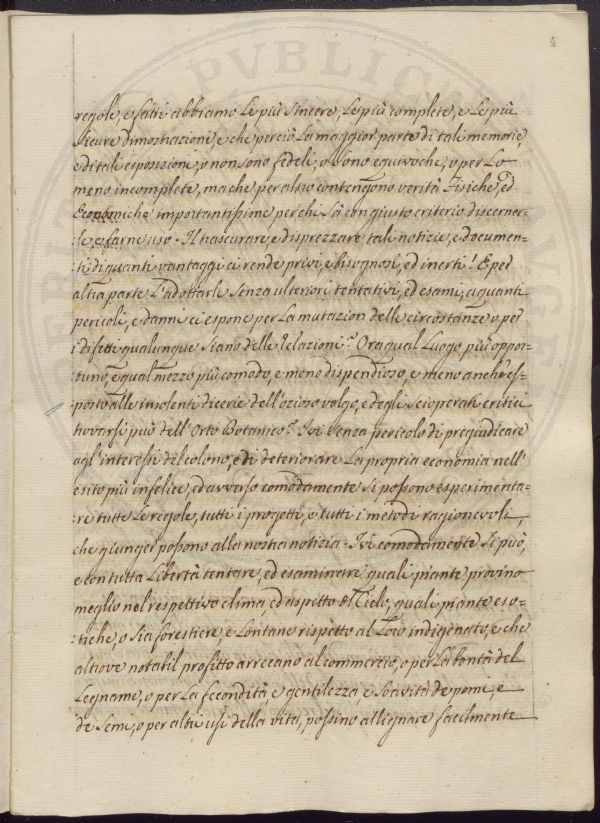 4
regole, e fatti abbiamo le più sincere, le più complete, e le più
sicure dimostrazioni, e che perciò la maggior parte di tali memorie,
e di tali esposizioni, o non sono fedeli, o sono equivoche, o per lo
meno incomplete, ma che per altro contengono verità Fisiche, ed
Economiche importantissime per chi sà con giusto criterio discerner-
:le, e farne uso. Il trascurare, e disprezzare tali notizie, e documen-
:ti di quanti vantaggi ci rende privi, e bisognosi, ed inerti! E per
altra parte l'adottarle senza ulteriori tentativi, ed esami, a quanti
pericoli, e danni ci espone per la mutazion delle circostanze o per
i difetti qualunque siano delle relazioni? Ora qual Luogo più oppor-
:tuno, e qual mezzo più comodo, e meno dispendioso, e meno anche es-
:posto alle insolenti dicerie dell'ozioso volgo, e degli scioperati critici
trovarsi può dell'Orto Botanico? Ivi senza pericolo di pregiudicare
agl'interessi del colono, e di deteriorare la propria economia nell'
esito più infelice, ed avverso comodamente si possono esperimenta-
:re tutte le regole, tutti i progetti, e tutti i metodi ragionevoli,
che giunger possono alla nostra notizia. Ivi comodamente si può,
e con tutta libertà tentare, ed esaminare quali piante provino
meglio nel respettivo clima, ed aspetto di Cielo, quali piante eso-
:tiche, o sia forestiere, e lontane rispetto al loro indigenato, e che
altrove notabil profitto arrecano al commercio, o per la bontà del
Legname, o per la fecondità, e gentilezza, e soavità de pomi, e
de semi, o per altri usi della vita, possino allignare facilmente
PUBLIC